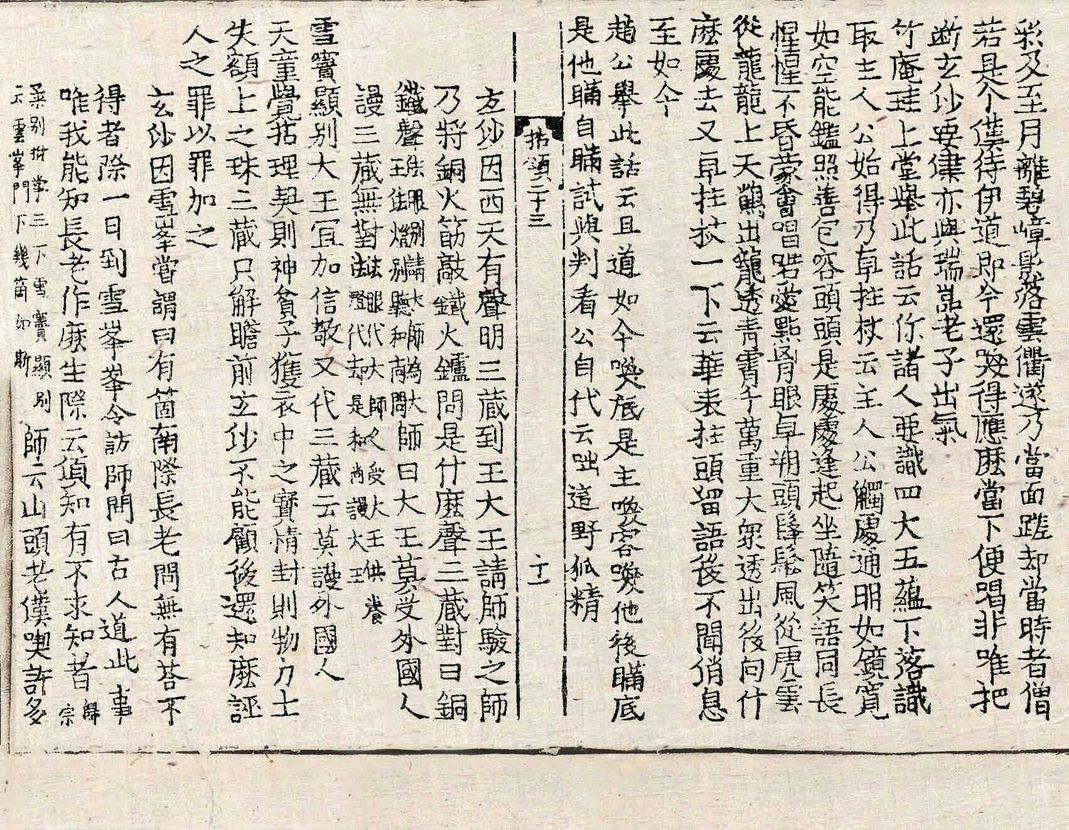 彩及至月離碧嶂影落雲衢遂乃當面蹉却當時者僧
若是个僕待伊道即今還喚得應麼當下便喝非唯把
断玄沙要津亦與瑞嵓老子出氣
竹庵珪上堂舉此話云你諸人亜識四大五蘊下落識
取主人公始得乃卓拄杖云主人公觸處通明如鏡寬
如空能鑑照善包容頭頭是處處逢起坐隨笑語同長
惺惺不昏蒙會唱喏愛點胷眼卓朔頭髼鬆風從虎雲
從龍龍上天鸎出籠透青霄千萬重大衆透出後向什
麽處去又卓拄杖一下云華表柱頭留語後不聞消息
至如今
趙公舉此話云且道如今喚底是主喚客喚他後瞞底
是他瞞自瞞試與判看公自代云咄這野狐精
拈頌二十三
十一
玄沙因西天有聲明三藏到王大王請師驗之師
乃將銅火筯敲鐵火鑪問是什麽聲三藏對曰銅
鐵聲法眼別請大師為大王徃燈別聽和尚問師曰大王莫受外國人
謾三藏無對法眼代大師久受大王供養法燈代去是和尚謾大王
雪竇顯別大王冝加信敬又代三藏云莫謾外國人
天童覺拈理契則神貧子獲衣中之寶情封則物力士
失額上之珠三藏只解瞻前玄沙不能顧後還知麽誣
人之罪以罪加之
玄沙因雪峯甞謂曰有箇南際長老問無有荅不
得者際一日到雪峯峯令訪師問曰古人道此事
唯我能知長老作麽生際云須知有不求知者歸宗
柔別拊掌三下雪竇顯別云雲峯門下幾箇如斯師云山頭老僕喫許多